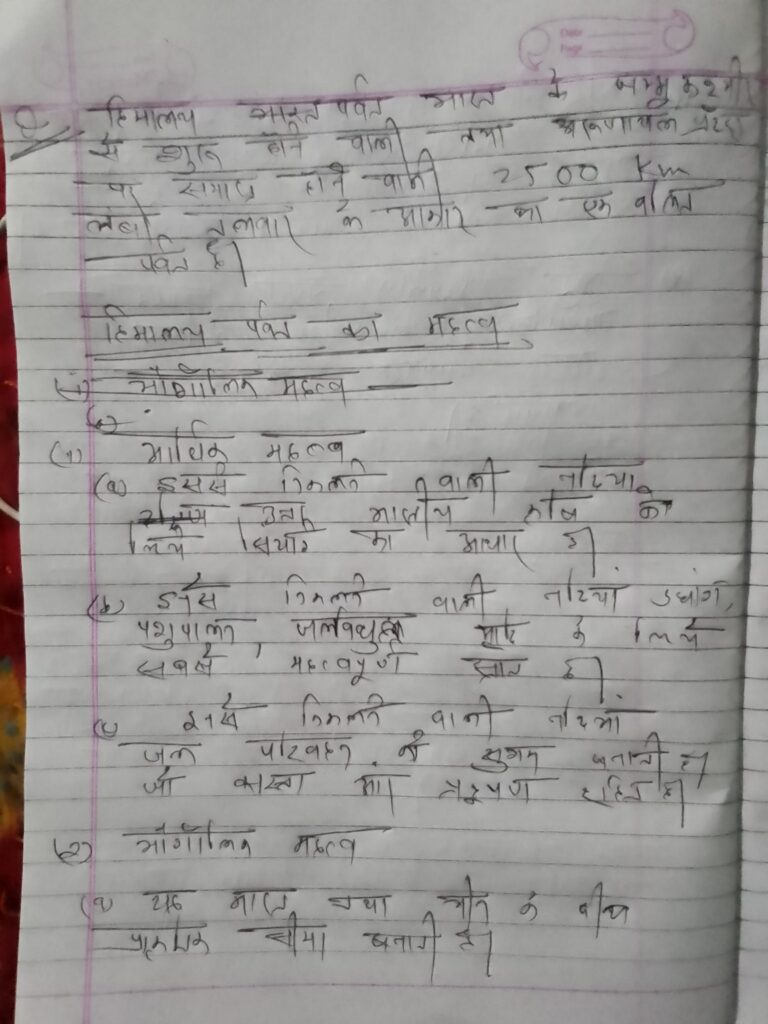 Date
Page
हिमालय पर्वत भारत के जम्मू कश्मीर
से शुरू होने वाली तथा अरूणाचल प्रदेश
पर समाप्त होने वाली 2500 Km
लंबी तलवार के आकार का एक वलित
पर्वत है।
हिमालय पर्वत का महत्व
भौगोलिक महत्व
(1) आर्थिक महत्व
(a) इससे निकलने वाली नदियां
उत्तर भारतीय कृषि के
लिये सिंचाई का आधार है।
(b) इनसे निकलने वाली नदियां उद्योग,
पशुपालन, जलविद्युत आदि के लिये
सबसे महत्वपूर्ण स्रोत है।
(c) इनसे निकलने वाली नदियाँ
जल परिवहन को सुगम बनाती है।
जो सस्ता प्रदूषण रहित है।
(2) भौगोलिक महत्व
(a) यह भारत तथा चीन के बीच
प्राकृतिक सीमा बनाती है।